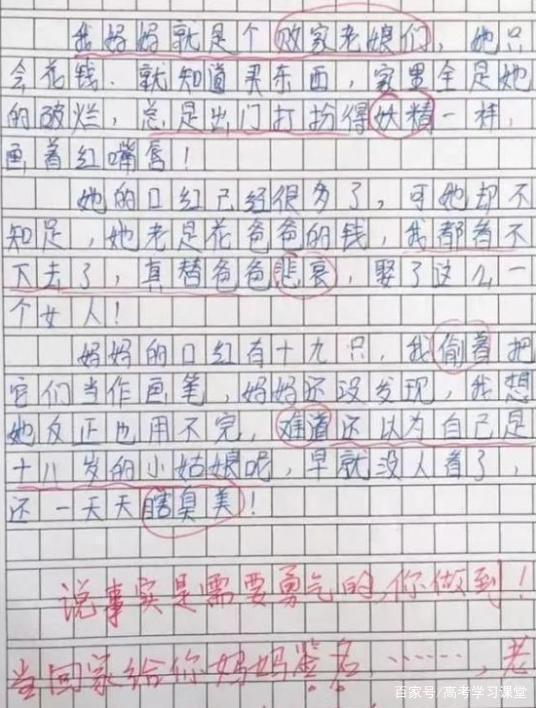 我妈妈就是个败家老娘们，她只
会花钱．就知道买东西，家里全是她
的破烂，总是出门打扮得妖精一样，
画着红嘴唇！
她的口红已经很多了，可她却不
知足，她老是花爸爸的钱，我都看不
下去了，真替爸爸悲哀，娶了这么一
个女人！
妈妈的口红有十九只，我偷着把
它们当作画笔，妈妈还没发现，我想
她反正也用不完，难道还以为自己是
十八岁的小姑娘呢，早就没人看了，
还一天天瞎臭美！
说事实是需要勇气的，你做到！
当回家给你妈妈签名……，老
百家号/高考学习课堂